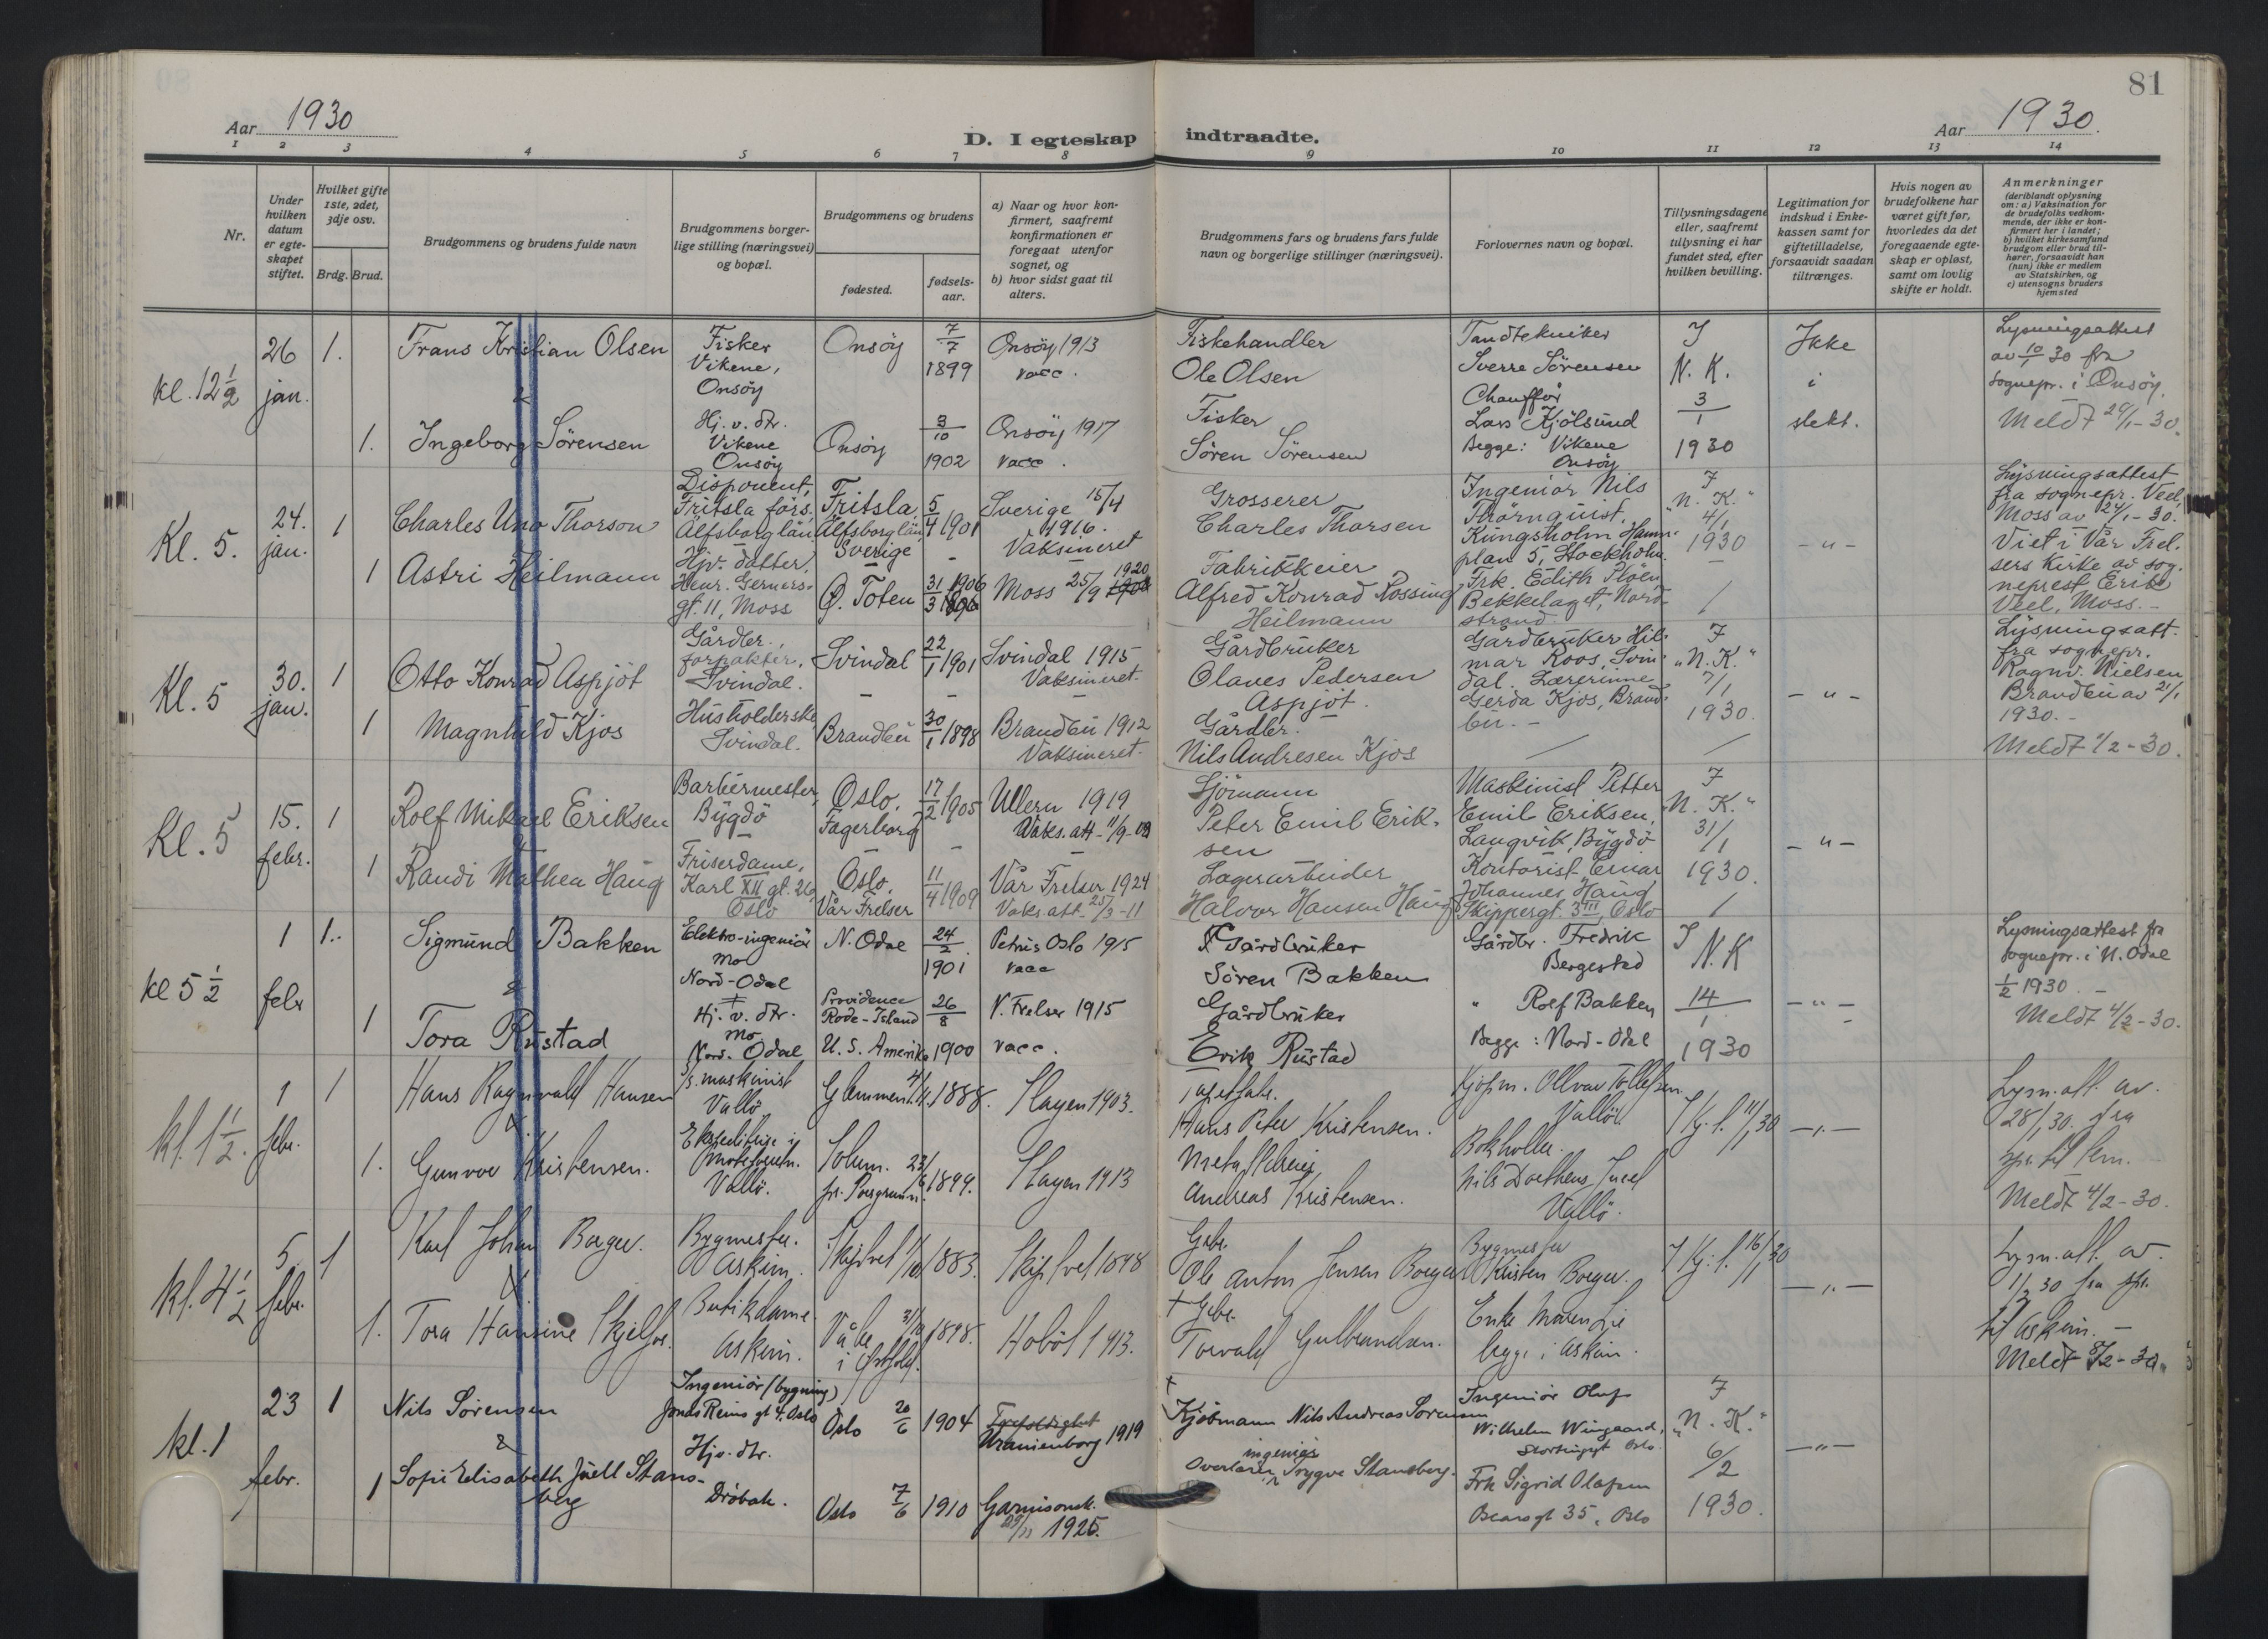 81
Aar 1930
D. I egteskap indtraadte.
Aar 1930.
1 2 3 4 5 6 7 8 9 10 11 12 13 14
Nr.
Under hvilken datum er egteskapet stiftet.
Hvilket gifte 1ste, 2det, 3dje osv.
Brdg. Brud.
Brudgommens og brudens fulde navn
Brudgommens borgerlige stilling (næringsvei) og bopæl.
Brudgommens og brudens
fødested.
fødselsaar.
a) Naar og hvor konfirmert, saafremt konfirmationen er foregaat utenfor sognet, og
b) hvor sidst gaat til alters.
Brudgommens fars og brudens fars fulde navn og borgerlige stillinger (næringsvei).
Forlovernes navn og bopæl.
Tillysningsdagene eller, saafremt tillysning ei har fundet sted, efter hvilken bevilling.
Legitimation for indskud i Enkekassen samt for giftetilladelse, forsaavidt saadan tiltrænges.
Hvis nogen av brudefolkene har været gift før, hvorledes da det foregaaende egteskap er opløst, samt om lovlig skifte er holdt.
Anmerkninger
(deriblandt oplysning om: a) Vaksination for de brudefolks vedkommende, der ikke er konfirmert her i landet; b) hvilket kirkesamfund brudgom eller brud tilhører, forsaavidt han (hun) ikke er medlem av Statskirken, og c) utensogns bruders hjemsted
kl. 12 1/2
26 jan.
1.
Frans Kristian Olsen
&
Fisker
Vikene,
Onsöy
Onsöy
7/7 1899
Onsöy 1913
vacc.
Fiskehandler
Ole Olsen
Tandtekniker
Sverre Sörensen
I
N. K.
3/1
1930
Ikke
i
slekt.
Lysningsattest
av 10/1 30 fra
sognepr. i Onsöy.
Meldt 29/1-30.
1.
Ingeborg Sörensen
Hj. v. dtr.
Vikene
Onsöy
Onsöy
3/10 1902
Onsöy 1917
vacc.
Fisker
Sören Sörensen
Chaufför
Lars Kjölsund
Begge: Vikene
Onsöy
Kl. 5.
24. jan.
1
Charles Uno Thorson
Disponent,
Fritsla förs.
Älfsborg län
Fritsla,
Älfsborg län
Sverige
5/4 1901
Sverige 15/4
1916.
Vaksineret
Grosserer
Charles Thorsen
Ingeniör Nils
Thörnquist,
Kungsholm Hamn-
plan 5, Stockholm.
I
"N. K."
4/1
1930
- " -
Lysningsattest
fra sognepr. Veel,
Moss av 24/1-30.
Viet i Vår Frel-
sers Kirke av sog-
neprest Erik
Veel, Moss. -
1
Astri Heilmann
Hjv. datter,
Henr. Gerners-
gt. 11, Moss
Ø. Toten
31/3 1906
Moss 25/9 1920
Fabrikkeier
Alfred Konrad Rossing
Heilmann
Frk. Edith Ploen
Bekkelaget, Nord-
strand
Kl. 5
30. jan.
1
Otto Konrad Aspjöt
Gårdbr.,
forpakter,
Svindal.
Svindal
22/1 1901
Svindal 1915
Vaksineret.
Gårdbruker
Olaves Pedersen
Aspjöt.
Gårdbruker Hil-
mar Roos, Svin-
dal. Lærerinne
Gerda Kjos, Brand-
bu. -
I
"N. K."
7/1
1930.
- " -
Lysningsatt.
fra sognepr.
Ragnv. Nielsen
Brandbu av 21/1
1930. -
Meldt 1/2-30.
1
Magnhild Kjos
Husholderske
Svindal.
Brandbu
30/1 1898
Brandbu 1912
Vaksineret.
Gårdbr.
Nils Andresen Kjos
Kl. 5
15. febr.
1
Rolf Mikael Eriksen
Barbermester,
Bygdö
Oslo.
Fagerborg
17/2 1905
Ullern 1919
Vaks. att. 11/9-
Sjömann
Peter Emil Erik-
sen
Maskinist Petter
Emil Eriksen,
Langvik, Bygdö
I
"N. K."
31/1
1930.
- " -
1
Randi Mathea Haug
Friserdame,
Karl XII gt. 26,
Oslo
Oslo.
Vår Frelser
11/4 1909
Vår Frelser 1924
Vaks. att. 25/3-11
Lagerarbeider
Halvor Hansen Haug
Kontorist Einar
Johannes Haug
Skippergt. 3 III, Oslo
kl 5 1/2
1 febr
1.
Sigmund Bakken
&
Elektro-ingeniör
Mo
Nord-Odal
N. Odal
24/2 1901
Petrus Oslo 1915
vacc
Gårdbruker
Sören Bakken
Gårdbr. Fredrik
Bergestad
I
N. K
14/1
1930
- " -
Lysningsattest fra
sognepr. i N. Odal
1/2 1930. -
Meldt 4/2-30.
1
Tora Rustad
Hj. v. dtr.
Mo
Nord. Odal
Providence
Rode-Island
U. S. Amerika
26/8 1900
V. Frelser 1915
vacc.
Gårdbruker
Erik Rustad
" Rolf Bakken
Begge: Nord-Odal
kl. 1 1/2.
1 febr.
1
Hans Ragnvald Hansen
&
maskinist
Vallö
Glemmen
1888.
Slagen 1903.
Hans Peter Kristensen.
Kjøpm. Ollvar Tollefsen
Vallö.
I Kj. f. 11/1 30
- " -
Lysn. att. av
28/1 30. fra
spr. til Sem.
Meldt 4/2-30.
1.
Gunvor Kristensen.
Vallö.
Solum.
pr. Porsgrunn.
1899.
Slagen 1913
Andreas Kristensen.
Bokholder
Vallö.
kl. 4 1/2
5. febr.
1
Karl Johan Borger.
&
Bygmester.
Askim.
Skiptvet
1883.
Skiptvet 1898
Gbr.
Ole Anton Jensen Borger
Bygmester
Kristen Borger.
I Kj. f. 16/1 30
- " -
Lysn. att. av
1/2 30 fra spr.
til Askim. -
Meldt 8/2-30.
1.
Tora Hansine Skjelfos.
Butikdame.
Askim.
Våler
i Østfold.
31/10 1898.
Hobøl 1913.
† Gbr.
Torvald Gulbrandsen.
Enke Maren Lie
begge i Askim.
kl. 1
23 febr.
1
Nils Sörensen
&
Ingeniör (bygning)
Jonas Reins gt 4. Oslo
Oslo
20/6 1904
Trefoldighet
Uranienborg 1919
†
Kjöbmann Nils Andreas Sörensen
Ingeniör Oluf
Wilhelm Wingaard,
Stortingsgt Oslo.
I
"N. K."
6/2
1930.
- " -
1
Sofie Elisabeth Juell Stans-
berg
Hjv. dtr.
Dröbak.
Oslo
7/6 1910
Garnisonsk.
29/11 1925.
ingeniör
Overlærer Trygve Stansberg.
Frk Sigrid Olafsen
35, Oslo